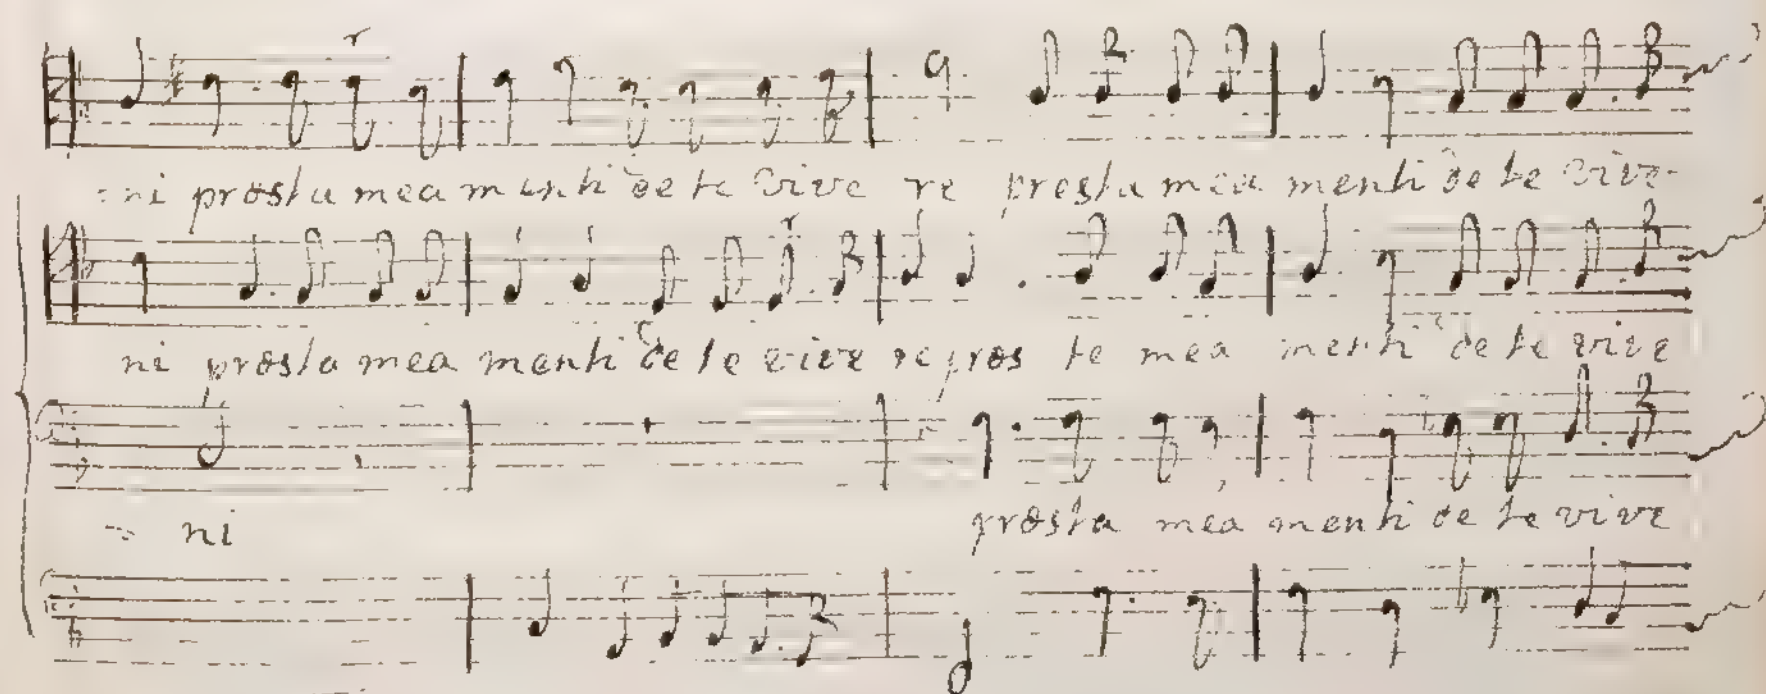 :ni præsta mea menti de te vive re præsta mea menti de te vive-
ni præsta mea menti de te vive re præs te mea menti de te vive
= ni præsta mea menti de te vive